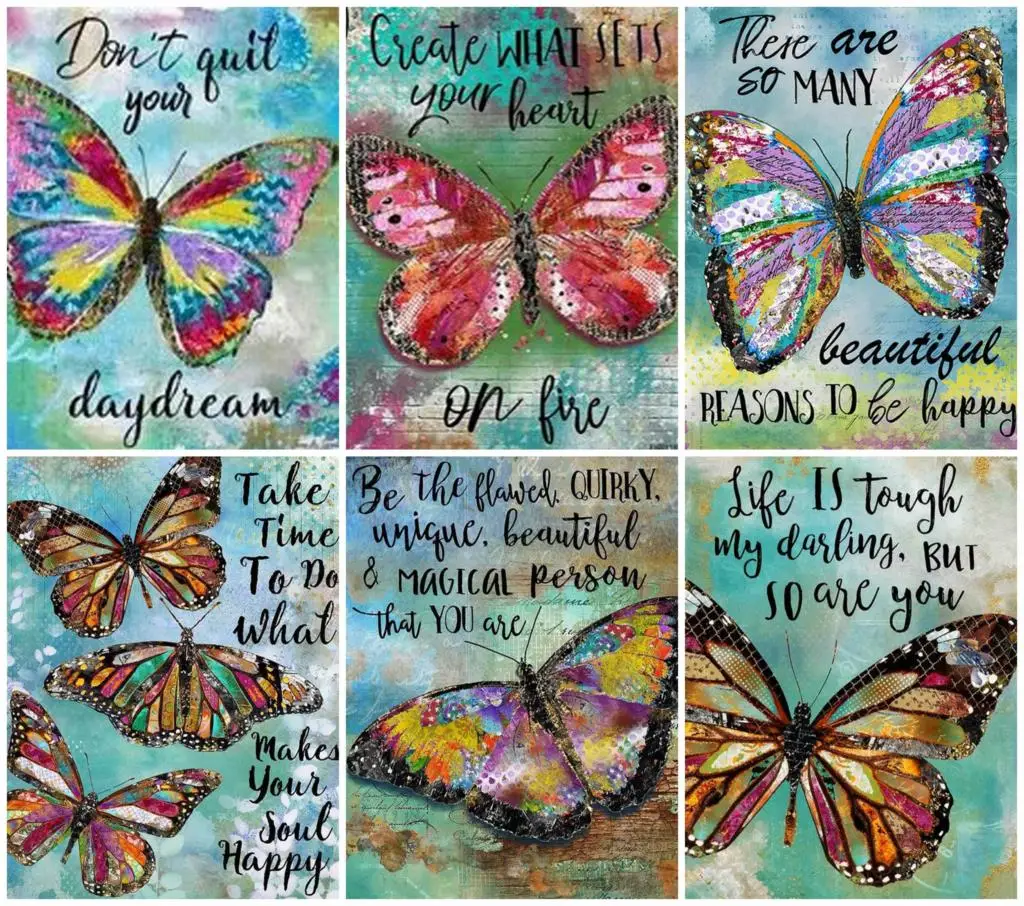 Don't quit
your
daydream
Create WHAT SETS
your heart
on fire
There are
so MANY
beautiful
REASONS TO be happy
Take
Time
To Do
What
Makes
Your
Soul
Happy
Be the flawed, QUIRKY,
unique, beautiful
& MAGICAL person
that YOU are
Life IS tough
my darling, BUT
SO are you